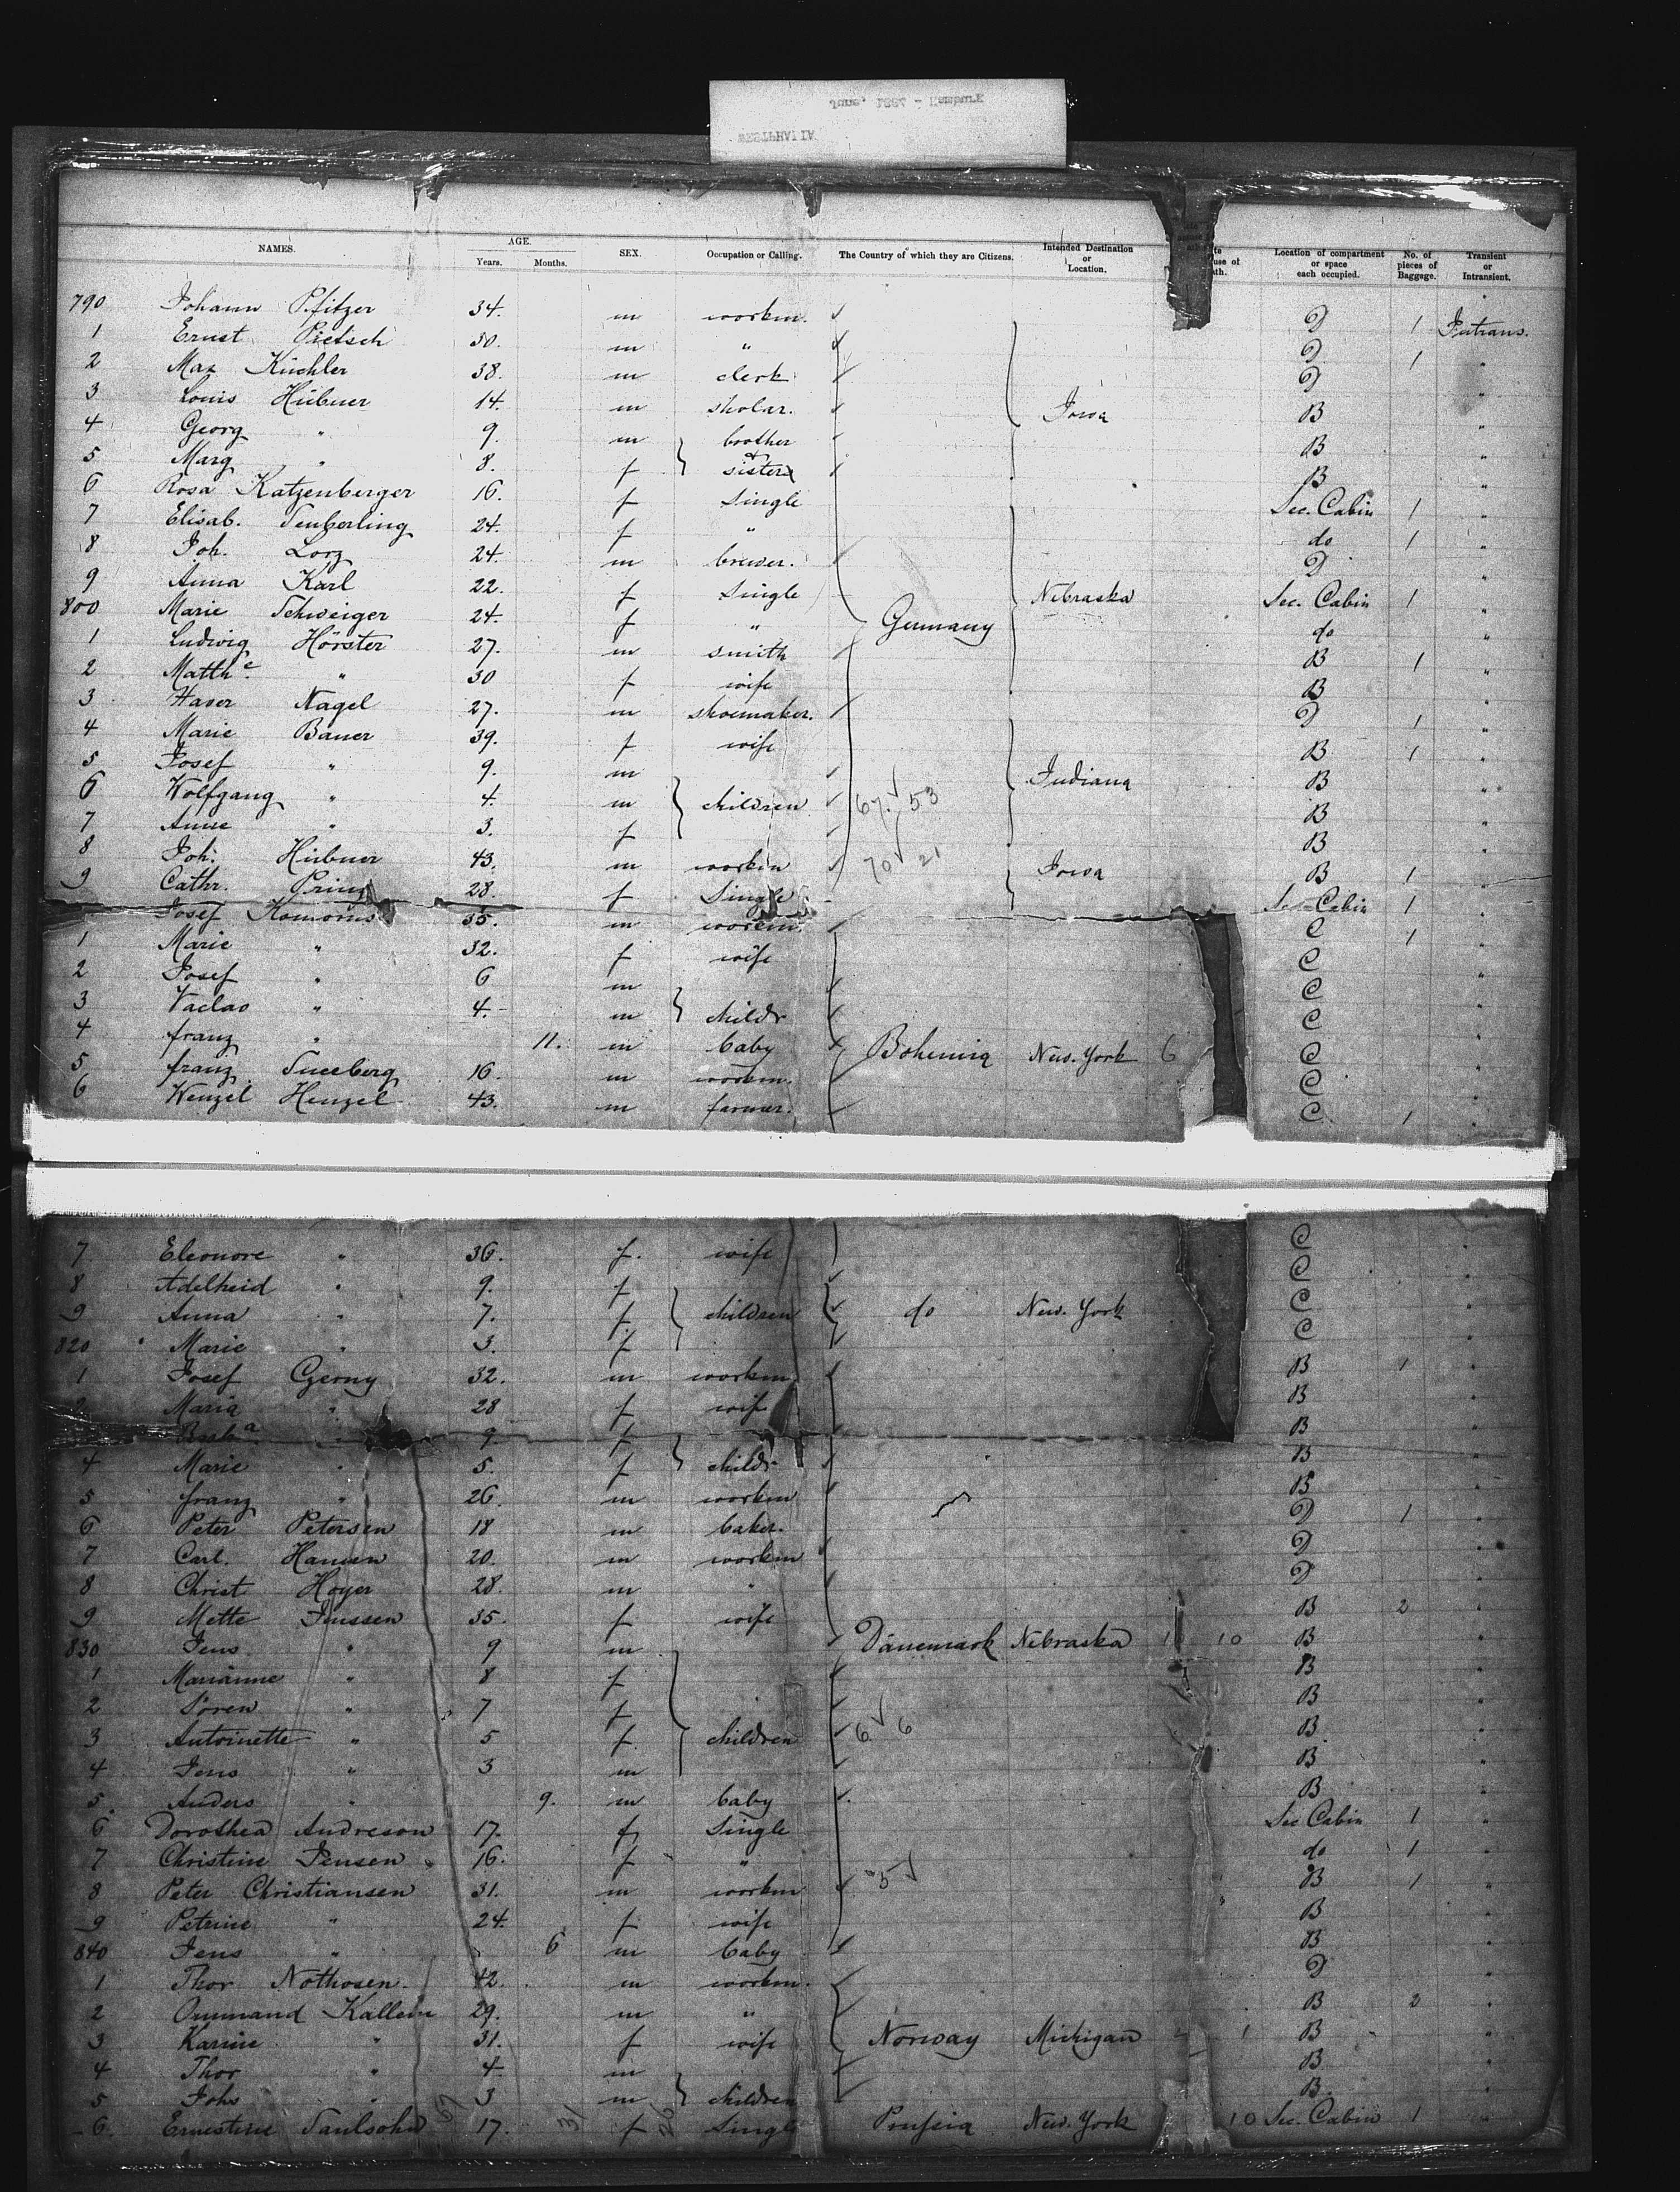 WESTPHALIA
June, 1887 - Hamburg
NAMES. AGE. Years. Months. SEX. Occupation or Calling. The Country of which they are Citizens. Intended Destination or Location. Location of compartment or space each occupied. No. of pieces of Baggage. Transient or Intransient.
790 Johann Pfitzer 34. m workm. D 1 Intrans.
1 Ernst Pietsch 30. m " D 1 "
2 Max Küchler 38. m clerk D "
3 Louis Hübner 14. m skolar. Iowa B "
4 Georg " 9. m brother B "
5 Marg " 8. f & sister B "
6 Rosa Katzenberger 16. f Single Sec. Cabin 1 "
7 Elisab. 24. f " do 1 "
8 Joh. Lorz 24. m brewer. D "
9 Anna Karl 22. f Single Nebraska Sec. Cabin 1 "
800 Marie Schweiger 24. f " Germany do "
1 Ludwig Hörster 27. m smith B 1 "
2 Mathe " 30 f wife B "
3 Xaver Nagel 27. m shoemaker. D 1 "
4 Marie Bauer 39. f wife B 1 "
5 Josef " 9. m Indiana B "
6 Wolfgang " 4. m children 67. 53 B "
7 Anne " 3. f B "
8 Joh. Hübner 43. m workm 70 21 Iowa B 1 "
9 Cathr. Prinz 28. f Single Sec Cabin 1 "
Josef 35. m workm. C 1
1 Marie " 32. f wife C "
2 Josef " 6 m C "
3 Vaclav " 4. m childr C "
4 franz " 11. m baby Bohemia New. York 6 C "
5 franz 16. m workm. C "
6 Wenzel Henzel 43. m farmer. C 1 "
7 Eleonore " 36. f. wife C "
8 Adelheid " 9. f C "
9 Anna " 7. f children do New. York C "
820 Marie " 3. f C "
1 Josef Czerny 32. m workm B 1 "
2 Maria " 28 f wife B "
" 9. f B "
4 Marie " 5. f childr B "
5 franz " 26. m workm B "
6 Peter Petersen 18 m baker. D 1 "
7 Carl. Hansen 20. m workm D "
8 Christ Hoyer 28. m " D "
9 Mette Jenssen 35. f wife B 2 "
830 Jens " 9 m Dänemark Nebraska 1 10 B "
1 Marianne " 8 f B "
2 Sören " 7 f B "
3 Antoinette " 5 f children 6 6 B "
4 Jens " 3 m B "
5. Anders " 9. m baby B "
6 Dorothea Andreson 17. f Single Sec Cabin 1 "
7 Christine Jensen 16. f " do 1 "
8 Peter Christiansen 31. m workm 5 B 1 "
9 Petrine " 24. f wife B "
840 Jens " 6 m baby B "
1 Thor Nothosen. 42. m workm. D "
2 Kallem 29. m " B 2 "
3 Karine " 31. f wife Norway Michigan 1 B "
4 Thor " 4 m B "
5 Johs " 3 m children B "
6. Ernestine Saulsohn 17. f Single Prussia New. York 10 Sec. Cabin 1 "